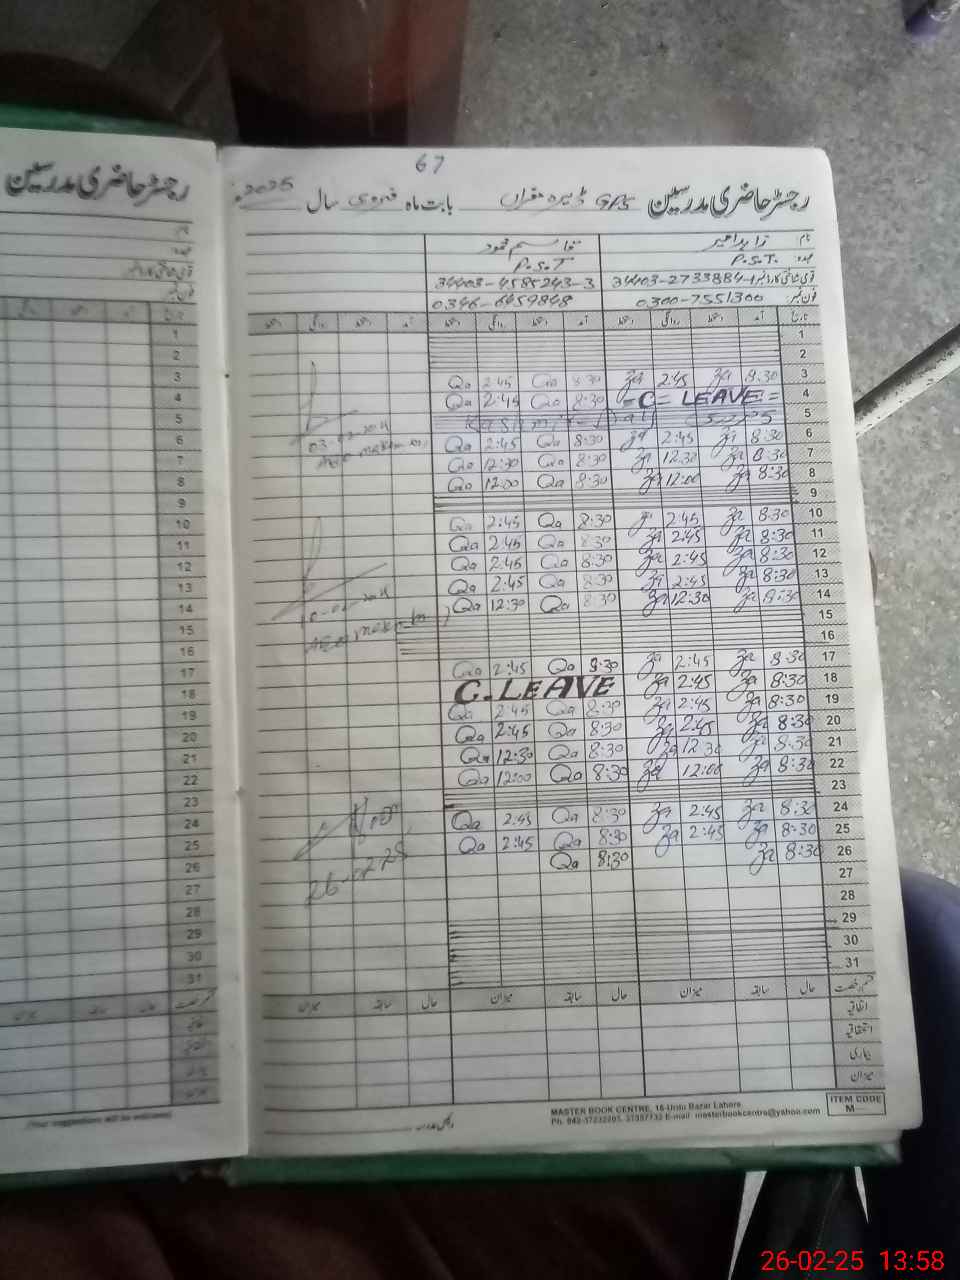 67
رجسٹر حاضری مدرسین GPS ڈیرہ بابت ماہ فروری سال 2025
رجسٹر حاضری مدرسین
نام زاہد قاسم محمود
عہدہ P.S.T. P.S.T
قومی شناختی کارڈ نمبر 34403-2733884-1 34403-4585243-3
فون نمبر 0300-7551300 0346-6459848
تاریخ آمد دستخط روانگی دستخط آمد دستخط روانگی دستخط آمد دستخط روانگی دستخط
1
2
Qa 2:45 Qa 8:30 Za 2:45 Za 8:30 3
Qa 2:45 Qa 8:30 =C= LEAVE = 4
Kashmir Day 5
Qa 2:45 Qa 8:30 Za 2:45 Za 8:30 6
Qa 12:30 Qa 8:30 Za 12:30 Za 8:30 7
Qa 12:00 Qa 8:30 Za 12:00 Za 8:30 8
9
Qa 2:45 Qa 8:30 Za 2:45 Za 8:30 10
Qa 2:45 Qa 8:30 Za 2:45 Za 8:30 11
Qa 2:45 Qa 8:30 Za 2:45 Za 8:30 12
Qa 2:45 Qa 8:30 Za 2:45 Za 8:30 13
Qa 12:30 Qa 8:30 Za 12:30 Za 8:30 14
15
16
Qa 2:45 Qa 8:30 Za 2:45 Za 8:30 17
C. LEAVE Za 2:45 Za 8:30 18
Qa 2:45 Qa 8:30 Za 2:45 Za 8:30 19
Qa 2:45 Qa 8:30 Za 2:45 Za 8:30 20
Qa 12:30 Qa 8:30 Za 12:30 Za 8:30 21
Qa 12:00 Qa 8:30 Za 12:00 Za 8:30 22
23
Qa 2:45 Qa 8:30 Za 2:45 Za 8:30 24
Qa 2:45 Qa 8:30 Za 2:45 Za 8:30 25
Qa 8:30 Za 8:30 26
27
28
29
30
31
26-02-25
قسم رخصت حال سابقہ میزان حال سابقہ میزان حال سابقہ میزان
اتفاقیہ
استحقاقیہ
بیماری
میزان
MASTER BOOK CENTRE, 16-Urdu Bazar Lahore.
ITEM CODE
M
تاریخ
1
2
3
4
5
6
7
8
9
10
11
12
13
14
15
16
17
18
19
20
21
22
23
24
25
26
27
28
29
30
31
26-02-25 13:58